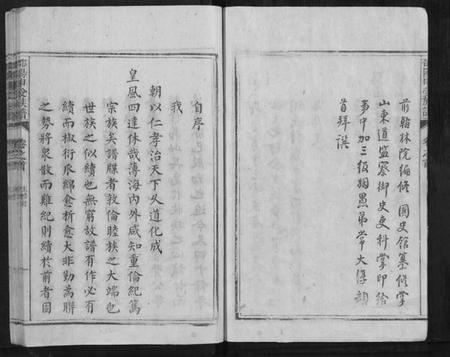 前翰林院編修 國史館纂修掌
山東道監察御史吏科掌印給
事中加三級姻愚弟常大淳頓
首拜譔
自序
我
朝以仁孝治天下久道化成
皇風四達休哉薄海內外咸知重倫紀篤
宗族矣譜牒者敦倫睦族之大端也
世族之似續也無窮故譜有作必有
續而椒衍瓜綿愈析愈大非勤為聯
之勢將衆散而難紀則續於前者固